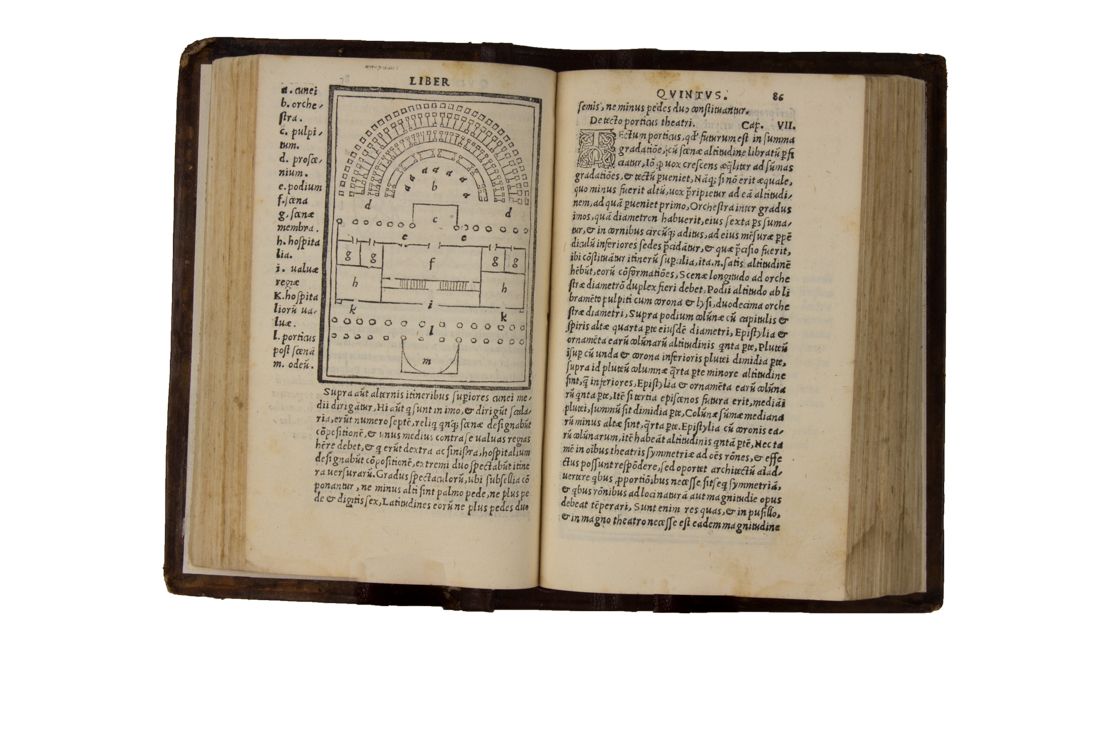 LIBER
a. cunei
b. orche-
stra.
c. pulpi-
tum.
d. proscæ-
nium.
e. podium
f. scæna
g. scænæ
membra.
h. hospita
lia.
i. ualuæ
regiæ
K. hospita
liorũ ua-
luæ.
l. porticus
post scænã
m. odeũ.
a a a a a a a
b
d d
c
e e
g g f g g
h h
i
k k
l
m
Supra aũt alternis itineribus suꝑiores cunei me-
dii dirigãtur, Hi aũt q sunt in imo, & dirigũt scala-
ria, erũt numero septẽ, reliq qnqꝫ scænæ designabũt
cõpositionẽ, & unus medius contra se ualuas regias
hẽre debet, & q erũt dextra ac sinistra, hospitalium
designabũt cõpositionẽ, extremi duo spectabũt itine
ra uersurarũ. Gradus spectaculorũ, ubi subsellia cõ
ponantur, ne minus alti sint palmo pede, ne plus pe
de & digitis sex, Latitudines eorũ ne plus pedes duo
QVINTVS. 86
semis, ne minus pedes duo constituantur.
De tecto porticus theatri. Cap. VII.
TEctum porticus, qđ futurum est in summa
gradatiõe, cũ scænæ altitudine libratũ ꝑfi
ciatur, Iõ ꝙ uox crescens æq̃liter ad sũmas
gradatiões, & tectũ ꝑueniet, Nãqꝫ si nõ erit æquale,
quo minus fuerit altũ, uox p̃ripietur ad eã altitudi-
nem, ad quã ꝑueniet primo, Orchestra inter gradus
imos, quã diametron habuerit, eius sexta ꝑs suma-
tur, & in cornibus circũqꝫ aditus, ad eius mẽsuræ ꝑpẽ
diculũ inferiores sedes p̃cidãtur, & quæ p̃cisio fuerit,
ibi cõstituãtur itinerũ suꝑcilia, ita .n. satis altitudinẽ
hẽbũt, eorũ cõformatiões, Scenæ longitudo ad orche
stræ diametrõ duplex fieri debet. Podii altitudo ab li
bramẽto pulpiti cum corona & lysi, duodecima orche
stræ diametri, Supra podium colũnæ cũ capitulis &
spiris altæ quarta ꝑte eiusdẽ diametri, Epistylia &
ornamẽta earũ colũnarũ altitudinis qnta ꝑte, Pluteũ
insuꝑ cũ unda & corona inferioris plutei dimidia ꝑte,
supra id pluteũ columnæ q̃rta ꝑte minore altitudine
sint, q̃ inferiores, Epistylia & ornamẽta earũ colũna
rũ qnta ꝑte, Itẽ si tertia episcænos futura erit, mediãi
plutei, summũ sit dimidia ꝑte, Colũnæ sũmæ mediana
rũ minus altæ sint, q̃rta ꝑte, Epistylia cũ coronis ea-
rũ colũnarum, itẽ habeãt altitudinis qntã ꝑtẽ, Nec ta
mẽ in oĩbus theatris symmetriæ ad oẽs rõnes, & effe
ctus possunt respõdere, sed oportet architectũ aĩad-
uertere qbus ꝓportiõibus necesse sit seq symmetriã,
& qbus rõnibus ad loci naturã aut magnitudiẽ opus
debeat tẽperari, Sunt enim res quas, & in pusillo,
& in magno theatro necesse est eadem magnitudine